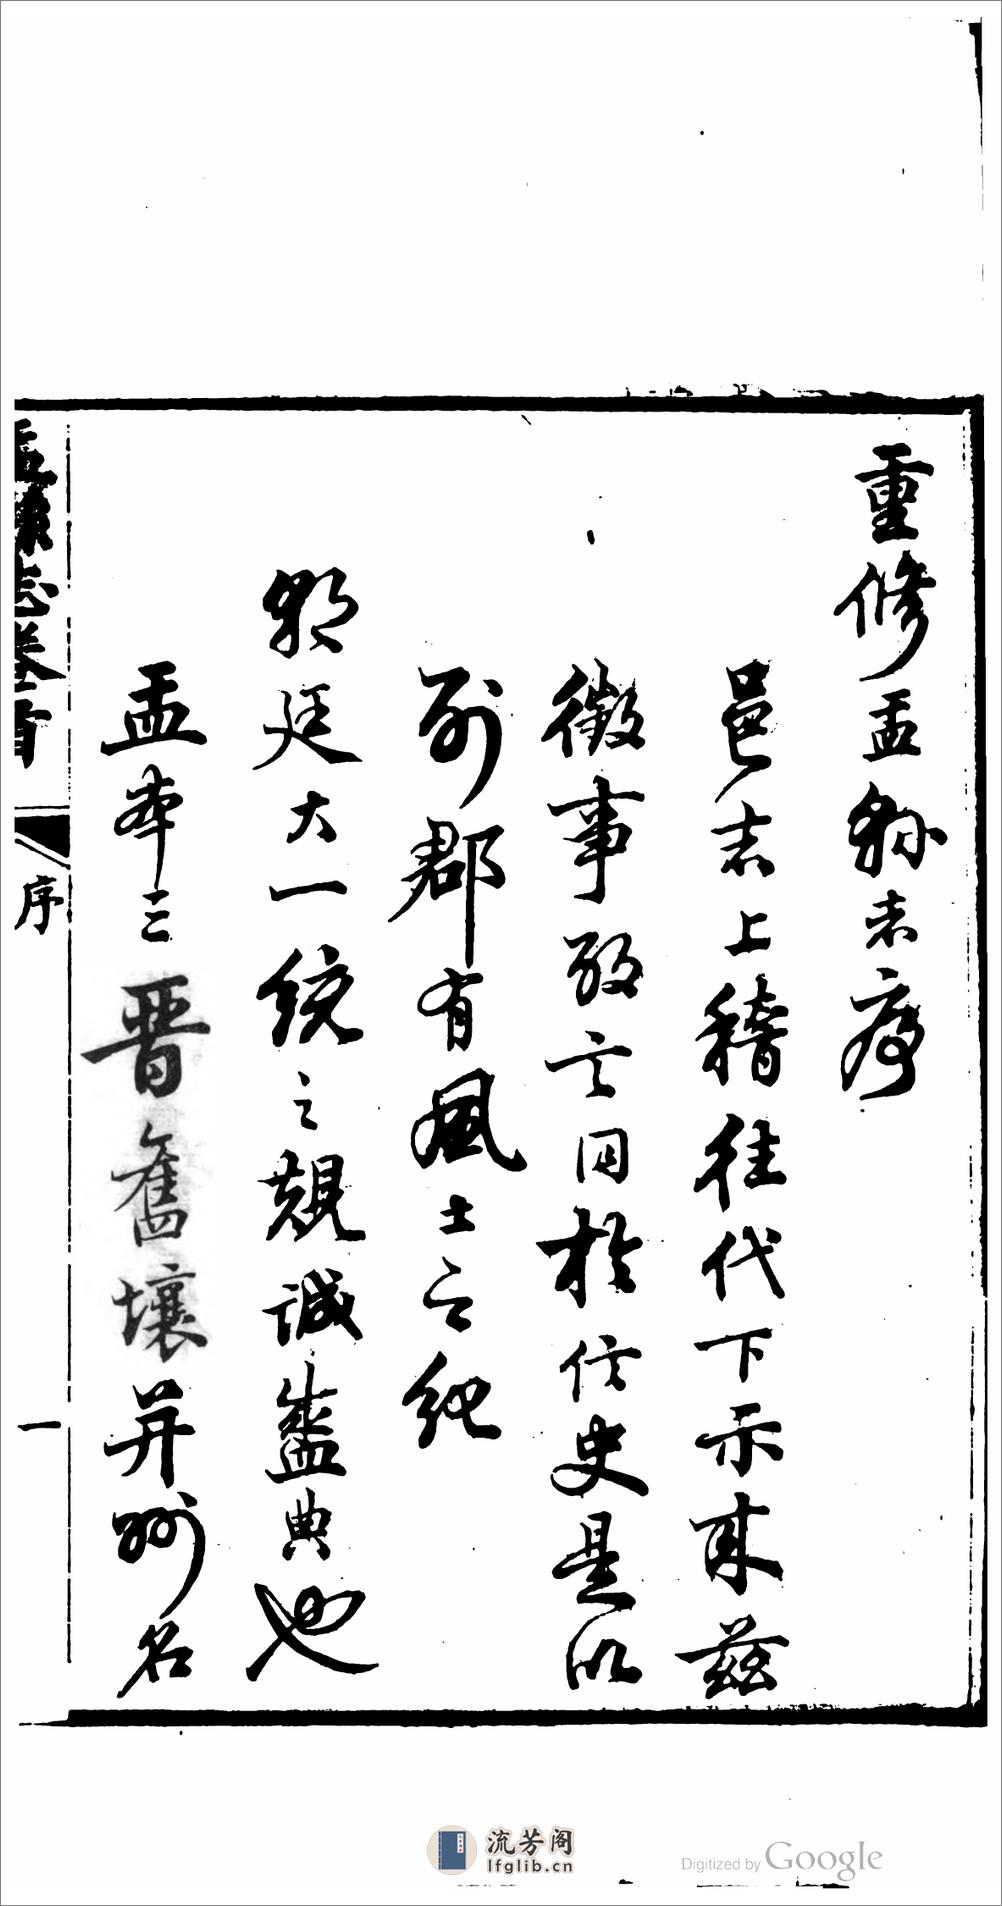 重修盂縣志序
邑志上稽往代下示來茲
徵事攷言同於信史是以
列郡有風土之紀
朝廷大一統之規誠盛典也
盂本三晋舊壤并州名
盂縣志卷首
序
一
流芳阁
lfglib.cn
Digitized by Google